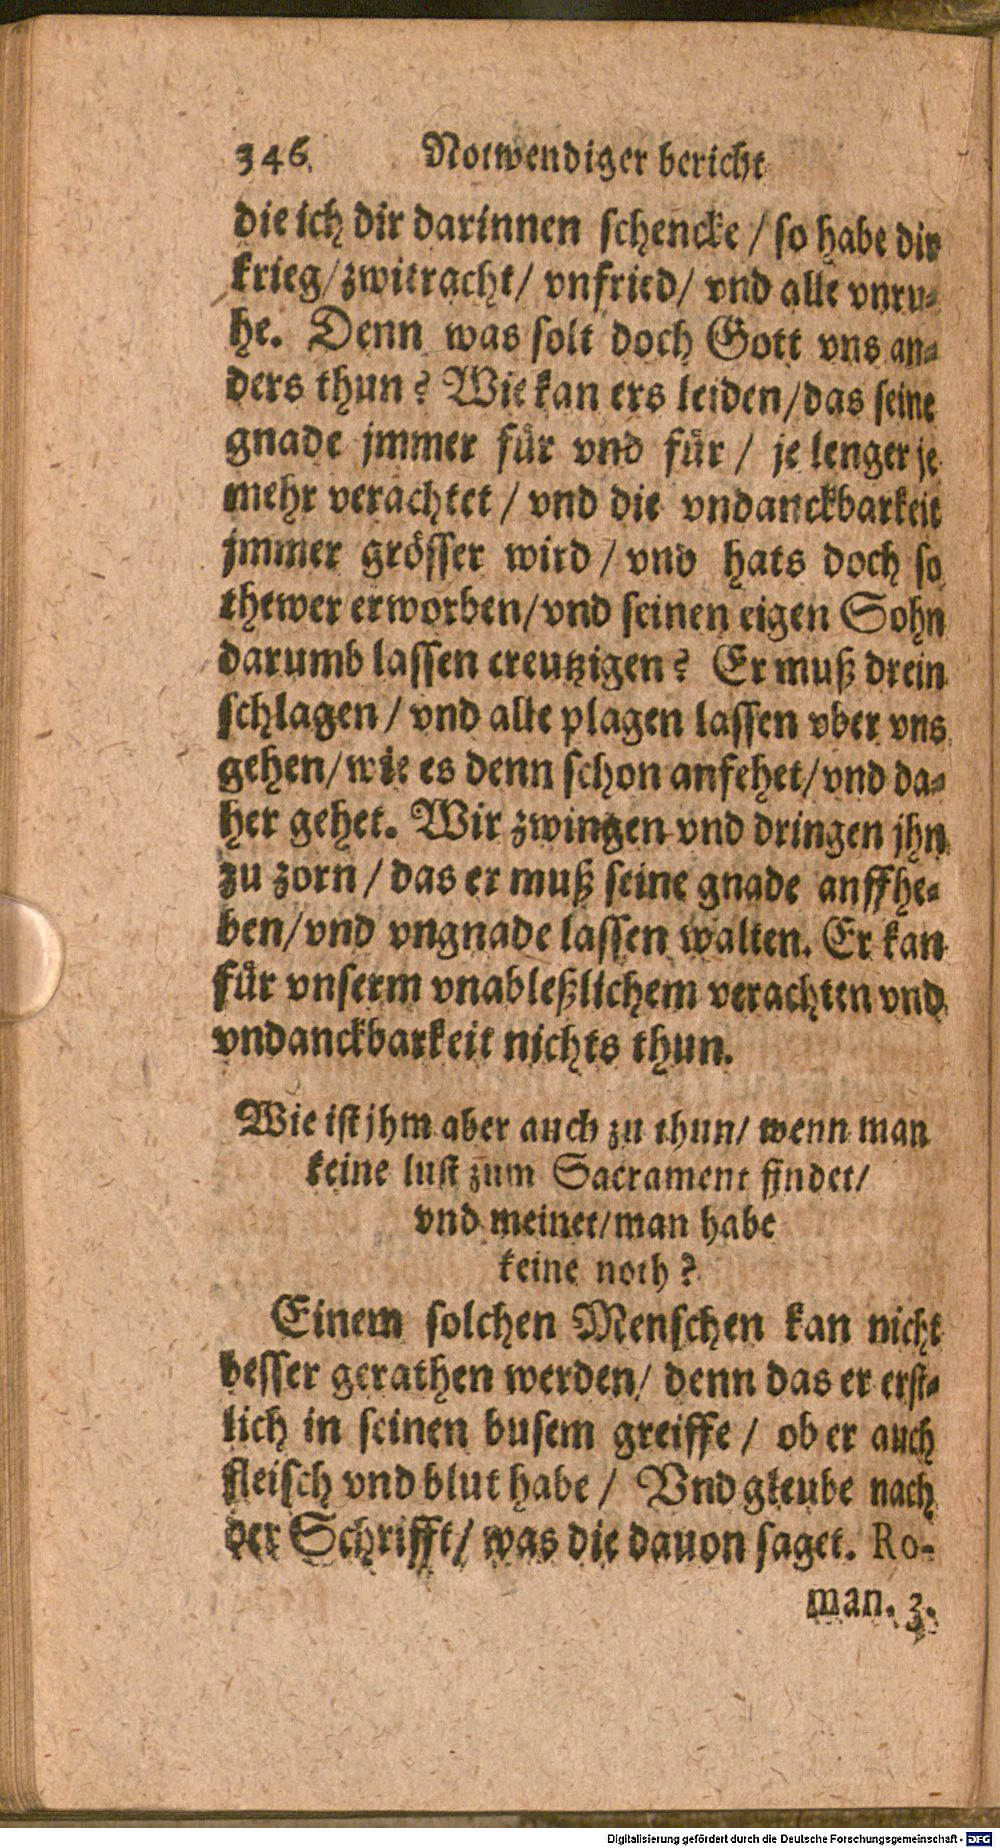 346. Notwendiger bericht
die ich dir darinnen schencke / so habe dir
krieg / zwitracht / vnfried / vnd alle vnru-
he. Denn was solt doch Gott vns an-
ders thun? Wie kan ers leiden / das seine
gnade jmmer für vnd für / je lenger je
mehr verachtet / vnd die vndanckbarkeit
jmmer grösser wird / vnd hats doch so
thewer erworben / vnd seinen eigen Sohn
darumb lassen creutzigen? Er muß drein
schlagen / vnd alle plagen lassen vber vns
gehen / wie es denn schon anfehet / vnd da-
her gehet. Wir zwingen vnd dringen jhn
zu zorn / das er muß seine gnade anffhe-
ben / vnd vngnade lassen walten. Er kan
für vnserm vnableßlichem verachten vnd
vndanckbarkeit nichts thun.
Wie ist jhm aber auch zu thun / wenn man
keine lust zum Sacrament findet /
vnd meinet / man habe
keine noth?
Einem solchen Menschen kan nicht
besser gerathen werden / denn das er erst-
lich in seinen busem greiffe / ob er auch
fleisch vnd blut habe / Vnd gleube nach
der Schrifft / was die dauon saget. Ro-
man. 3.
Digitalisierung gefördert durch die Deutsche Forschungsgemeinschaft - DFG